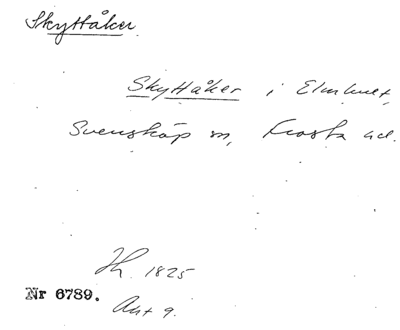 Skyttåker
Skyttåker i Elmhult,
Svensköp sn, Frosta hd.
Th. 1825
Nr 6789. Akt 9.